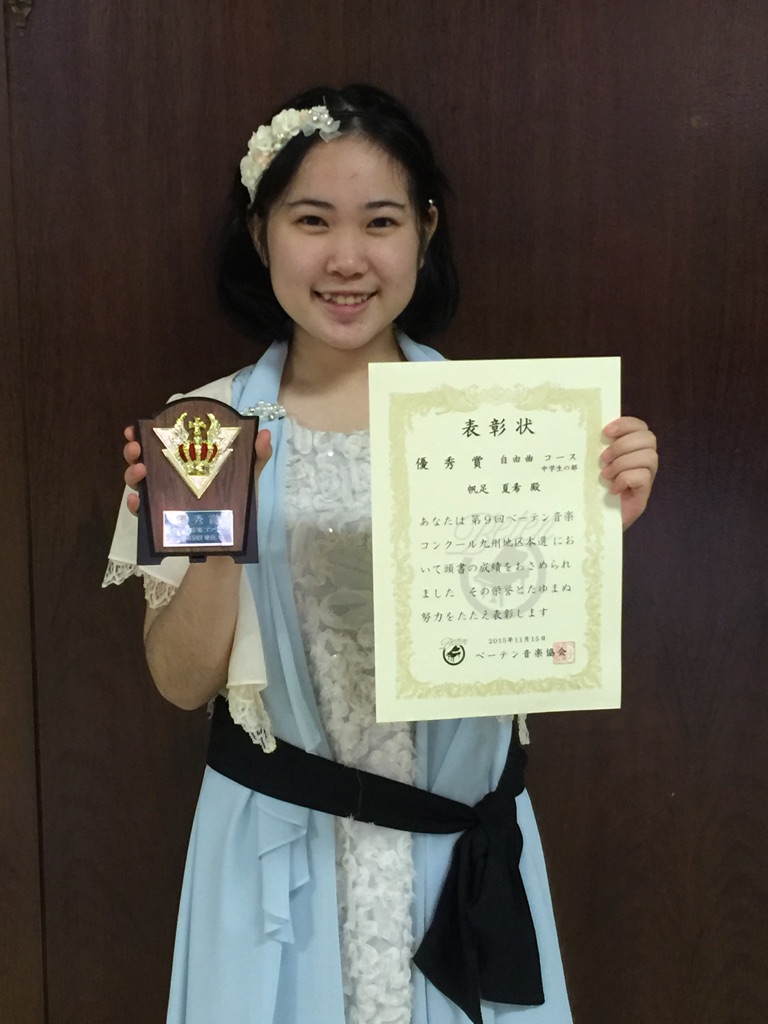 表彰状
優秀賞 自由曲 コース
中学生の部
帆足 夏希 殿
あなたは 第9回ベーテン音楽
コンクール九州地区本選 にお
いて頭書の成績をおさめられ
ました その栄誉とたゆまぬ
努力をたたえ表彰します
2015年11月15日
ベーテン音楽協会
秀賞